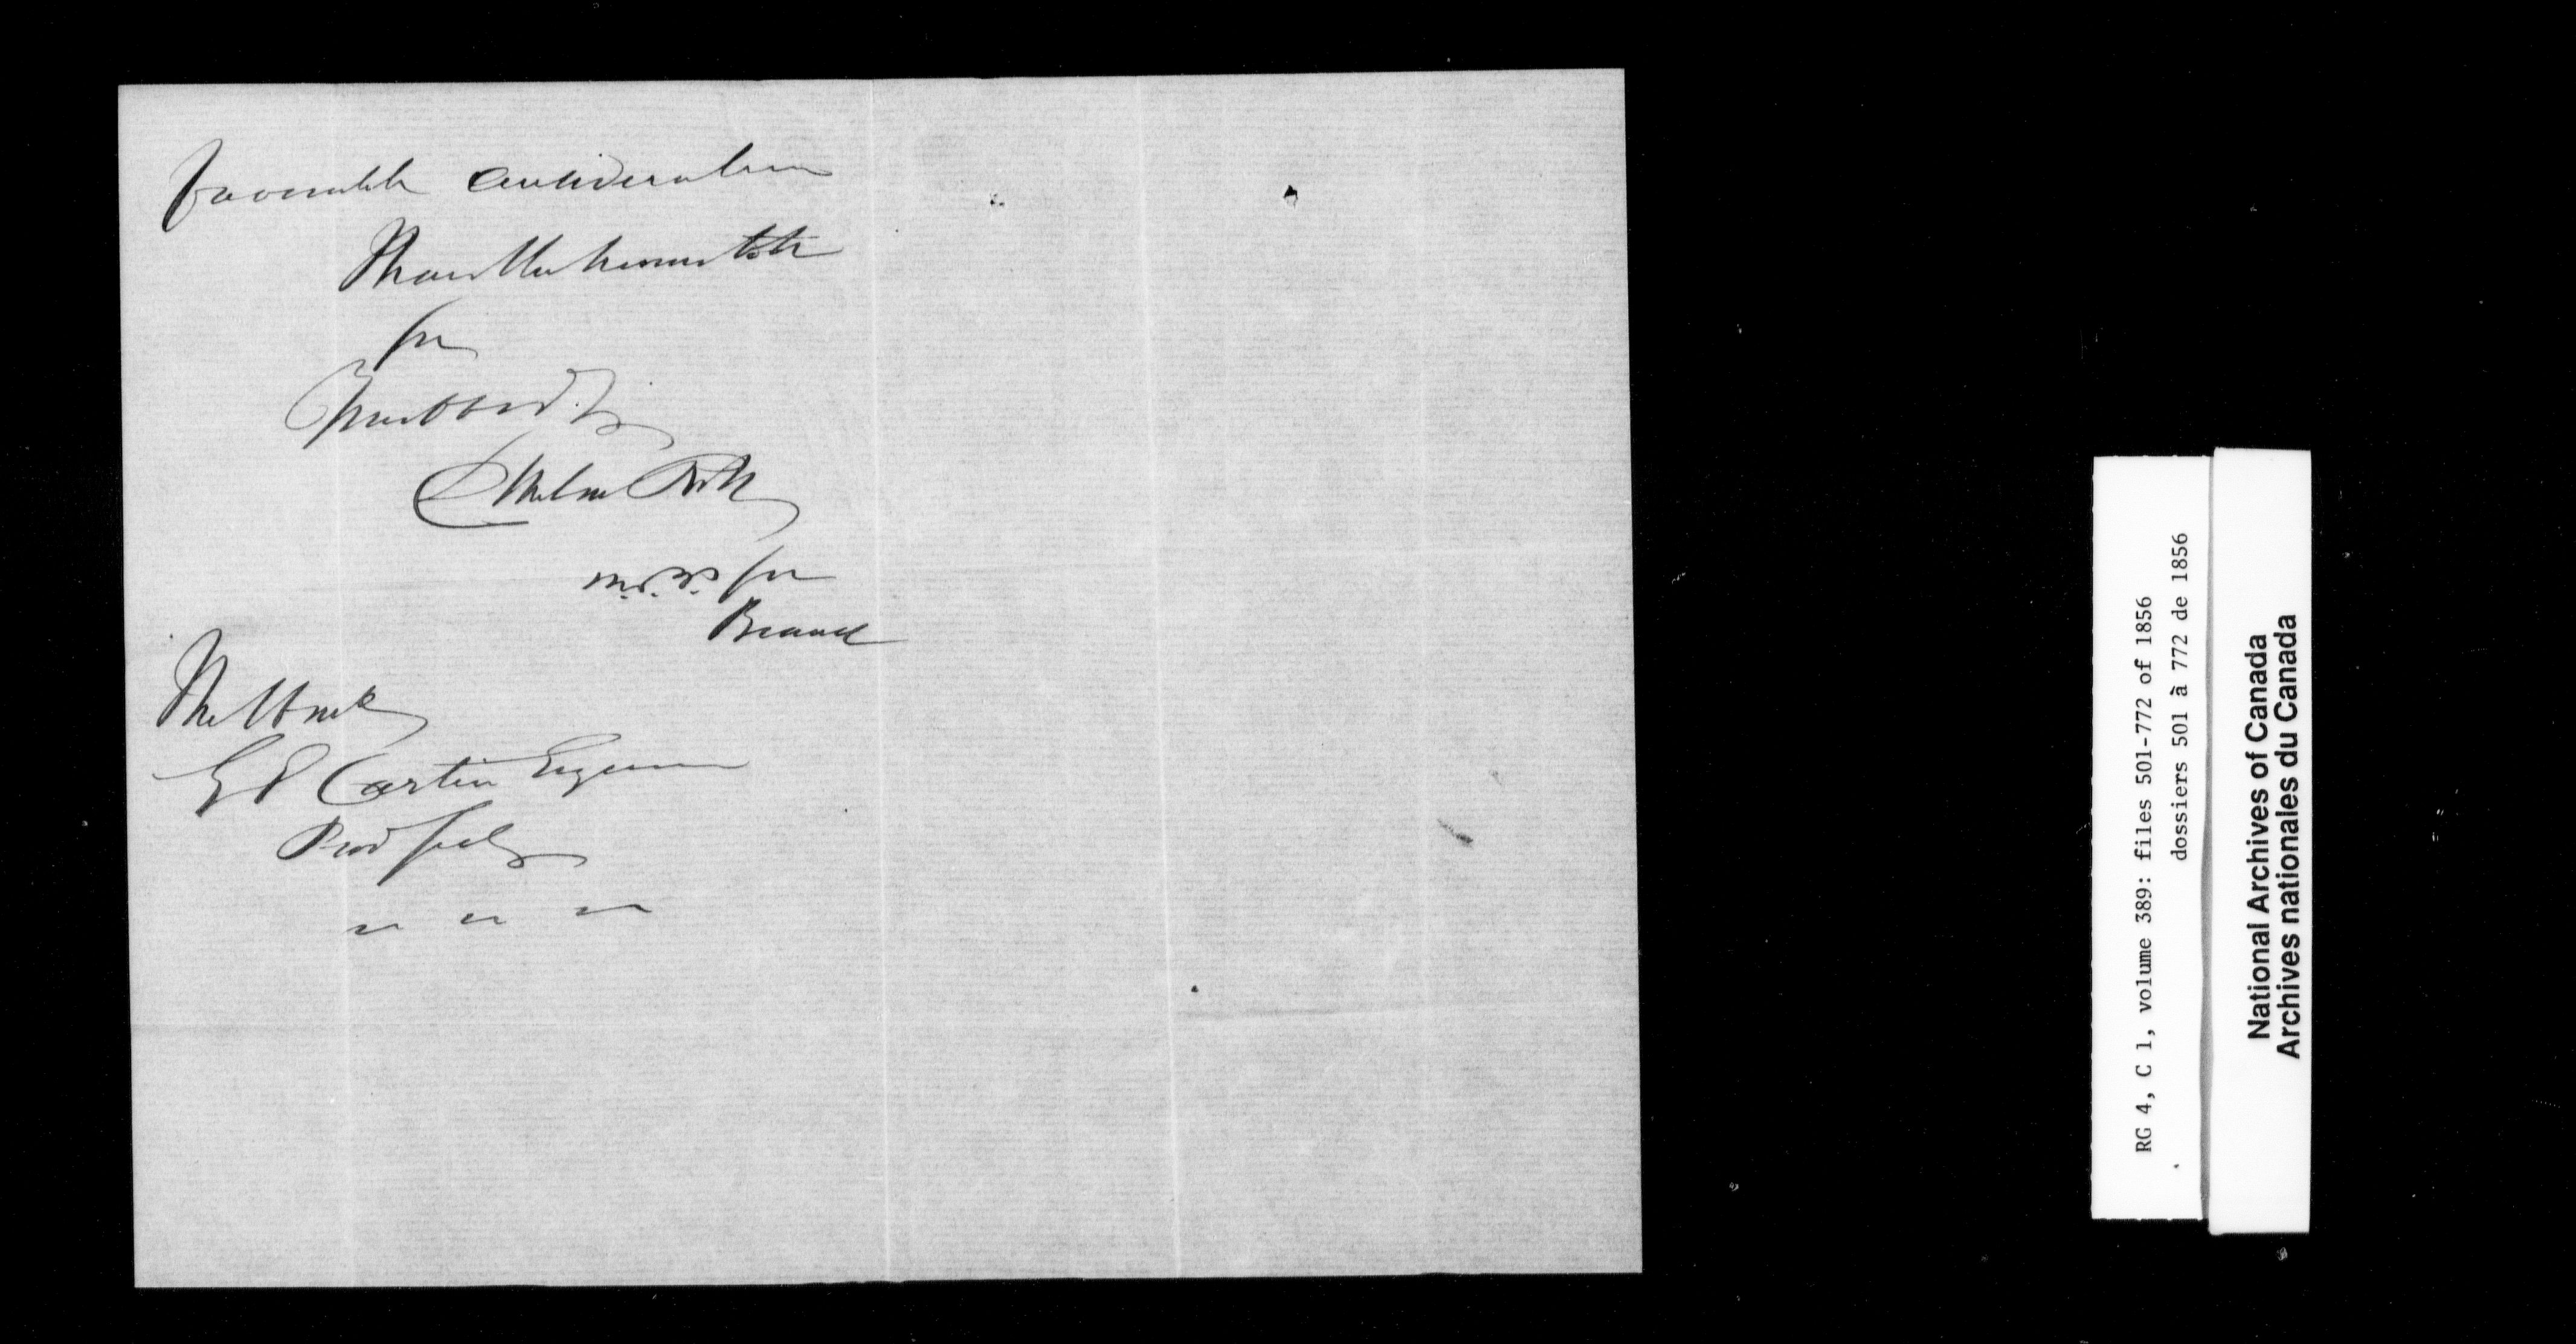 favorable consideration
I have the honor to be
Sir
Your obed. S.
M.P.P. for
The Honble
G E Cartier Esquire
Prov Secty
RG 4, C 1, volume 389: files 501-772 of 1856
dossiers 501 à 772 de 1856
National Archives of Canada
Archives nationales du Canada